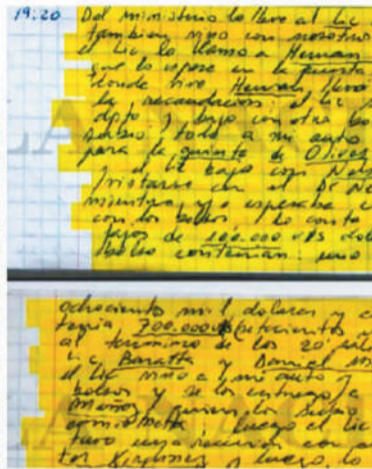 19:20 Del ministerio lo llevo al Lic
tambien vino con nosotros
el Lic lo llamo a Hernan
que lo espere en la puerta
donde vive Hernan llevo
la recaudacion: el Lic
dpto y bajo con otro bo
todo a mi auto
para la quinta de Olivos
el Lic bajo con
con el Dr
mientras yo esperaba
con los bolsos lo conto
fajos de 100.000 U$S dola
bolso contenian: uno
ochocientos mil dolares y
tenia 700.000 U$S (setecientos
al termino de los 20
Lic Baratta y Daniel
el Lic vino a mi auto
bolsos y se los entrego a
Muñoz quien los
luego el Lic
tuvo una reunion con
Kirchner y luego lo